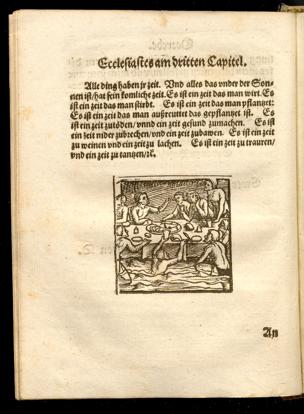 Ecclesiastes am dritten Capitel.
Alle ding haben jr zeit. Vnd alles das vnder der Son-
nen ist/hat sein komliche zeit. Es ist ein zeit das man wirt. Es
ist ein zeit das man stirbt. Es ist ein zeit das man pflantzet:
Es ist ein zeit das man außreuttet das gepflantzet ist. Es
ist ein zeit zutöden/vnnd ein zeit gesund zumachen. Es ist
ein zeit nider zubrechen/vnd ein zeit zubawen. Es ist ein zeit
zu weinen vnd ein zeit zu lachen. Es ist ein zeit zu trauren/
vnd ein zeit zu tantzen/ꝛc.
An